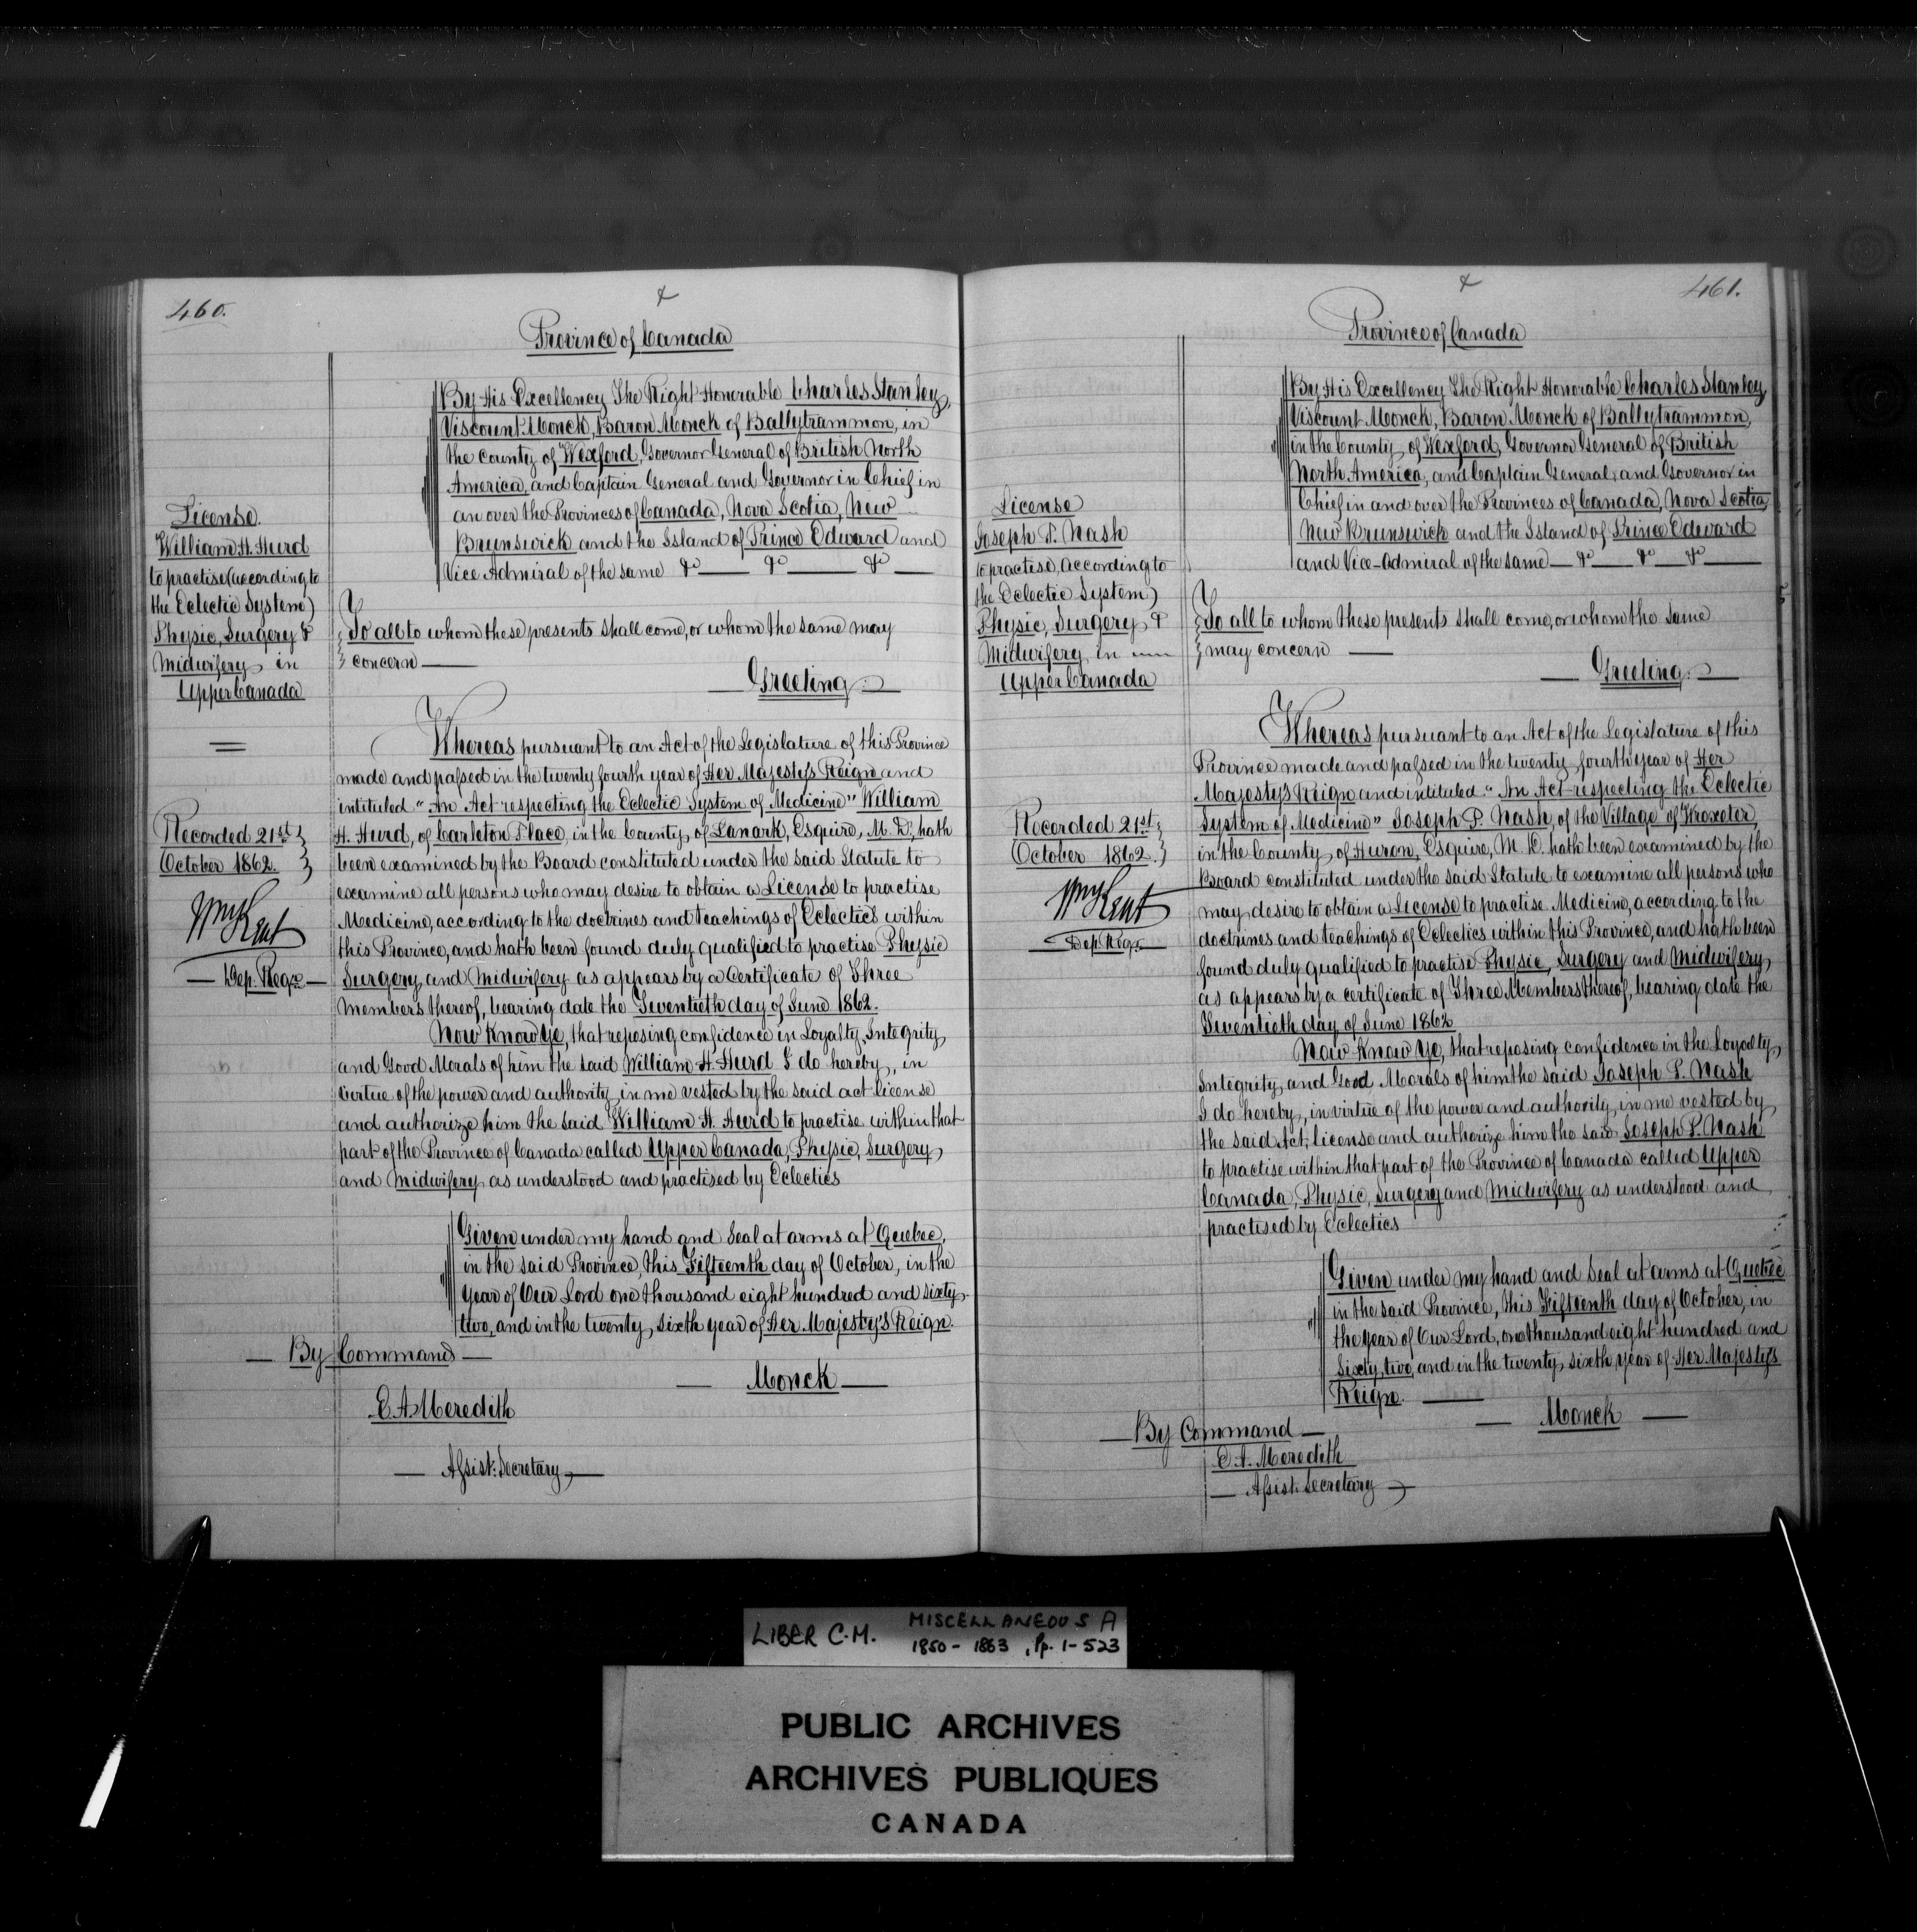 460.
+
Province of Canada
By His Excellency The Right Honorable Charles Stanley,
Viscount Monck, Baron Monck of Ballytrammon, in
the County of Wexford, Governor General of British North
America, and Captain General and Governor in Chief in
an over the Provinces of Canada, Nova Scotia, New
Brunswick and the Island of Prince Edward and
Vice Admiral of the same &c &c &c
License.
William H. Hurd
to practise (according to
the Eclectic System)
Physic, Surgery &
Midwifery in
Upper Canada
To all to whom these presents shall come, or whom the same may
concern
Greeting:
Whereas pursuant to an Act of the Legislature of this Province
made and passed in the twenty fourth year of Her Majesty's Reign and
intituled "An Act respecting the Eclectic System of Medicine" William
H. Hurd, of Carleton Place, in the County of Lanark, Esquire, M. D., hath
been examined by the Board constituted under the said Statute to
examine all persons who may desire to obtain a License to practise
Medicine, according to the doctrines and teachings of Eclectics within
this Province, and hath been found duly qualified to practise Physic
Surgery and Midwifery as appears by a Certificate of Three
Members thereof, bearing date the Twentieth day of June 1862.
Recorded 21st
October 1862.
Wm Kent
Dep. Regr
Now Know Ye, that reposing confidence in Loyalty, Integrity
and Good Morals of him the said William H. Hurd I do hereby, in
virtue of the power and authority in me vested by the said act license
and authorize him the said William H. Hurd to practise within that
part of the Province of Canada called Upper Canada, Physic, Surgery,
and Midwifery as understood and practised by Eclectics
Given under my hand and Seal at arms at Quebec,
in the said Province, this Fifteenth day of October, in the
Year of Our Lord one thousand eight hundred and sixty
two, and in the twenty sixth year of Her Majesty's Reign.
By Command
Monck
E. A. Meredith
Assist. Secretary
+
461.
Province of Canada
By His Excellency The Right Honorable Charles Stanley,
Viscount Monck, Baron Monck of Ballytrammon,
in the County of Wexford, Governor General of British
North America, and Captain General and Governor in
Chief in and over the Provinces of Canada, Nova Scotia,
New Brunswick and the Island of Prince Edward
and Vice-Admiral of the same &c &c &c
License
Joseph P. Nash
to practise, according to
the Eclectic System)
Physic, Surgery &
Midwifery in
Upper Canada
To all to whom these presents shall come, or whom the same
may concern
Greeting:
Whereas pursuant to an Act of the Legislature of this
Province made and passed in the twenty fourth year of Her
Majesty's Reign and intituled "An Act respecting the Eclectic
System of Medicine" Joseph P. Nash, of the Village of Wroxeter,
in the County of Huron, Esquire, M. D. hath been examined by the
Board constituted under the said Statute to examine all persons who
may desire to obtain a License to practise Medicine, according to the
doctrines and teachings of Eclectics within this Province, and hath been
found duly qualified to practise Physic, Surgery and Midwifery,
as appears by a certificate of Three Members thereof, bearing date the
Twentieth day of June 1862
Recorded 21st
October 1862.
Wm Kent
Dep. Regr
Now Know Ye, that reposing confidence in the Loyalty,
Integrity and Good Morals of him the said Joseph P. Nash
I do hereby, in virtue of the power and authority in me vested by
the said Act, license and authorize him the said Joseph P. Nash
to practise within that part of the Province of Canada called Upper
Canada, Physic, Surgery and Midwifery as understood and
practised by Eclectics
Given under my hand and Seal at arms at Quebec
in the said Province, this Fifteenth day of October, in
the year of Our Lord, one thousand eight hundred and
Sixty two, and in the twenty sixth year of Her Majesty's
Reign.
Monck
By Command
E. A. Meredith
Assist. Secretary
LIBER C.M. MISCELLANEOUS A
1850 - 1863, Pp. 1-523
PUBLIC ARCHIVES
ARCHIVES PUBLIQUES
CANADA